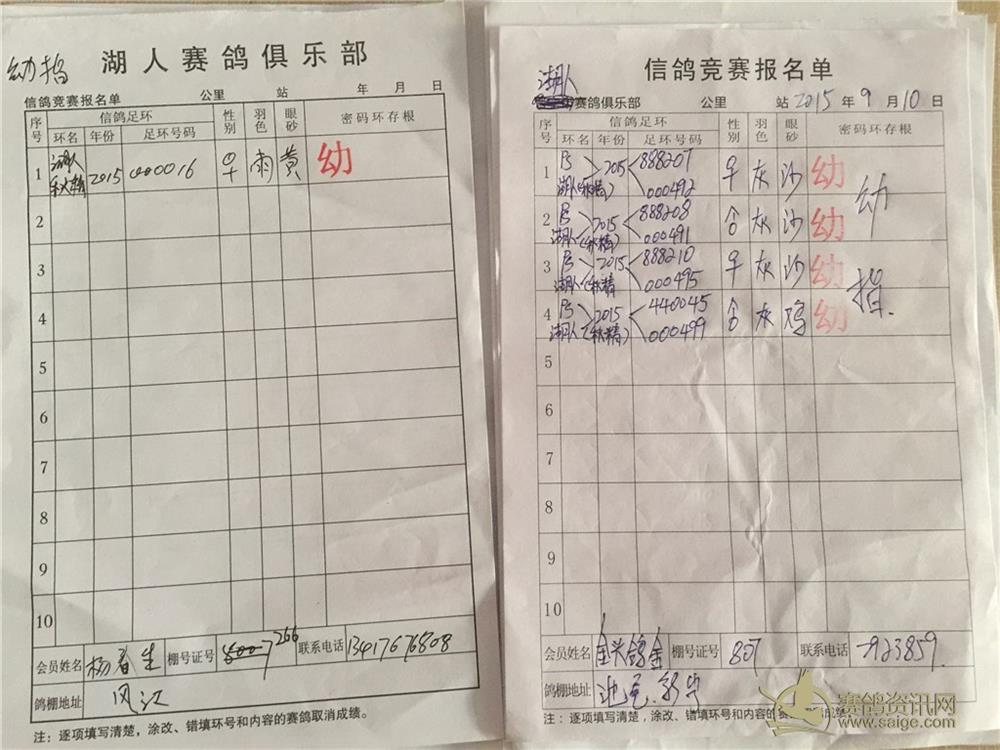 幼指
湖人赛鸽俱乐部
信鸽竞赛报名单 公里 站 年 月 日
序号 信鸽足环 性别 羽色 眼砂 密码环存根
环名 年份 足环号码
1 湖人 2015 000016 雨 黄 幼
2
3
4
5
6
7
8
9
10
会员姓名 杨春生 棚号证号 266 联系电话 13417676808
鸽棚地址 风江
注：逐项填写清楚，涂改、错填环号和内容的赛鸽取消成绩。
信鸽竞赛报名单
湖人 赛鸽俱乐部 公里 站 2015 年 9 月 10 日
序号 信鸽足环 性别 羽色 眼砂 密码环存根
环名 年份 足环号码
1 2015 888207 灰 沙 幼
湖人(秋精) 000492
2 2015 888208 灰 沙 幼
湖人(秋精) 000491
3 2015 888210 灰 沙 幼
湖人(秋精) 000495
4 2015 440045 灰 鸡 幼
湖人(秋精) 000499
幼指.
5
6
7
8
9
10
会员姓名 棚号证号 807 联系电话 7923859.
鸽棚地址
注：逐项填写清楚，涂改、错填环号和内容的赛
赛鸽资讯网
www.saige.com